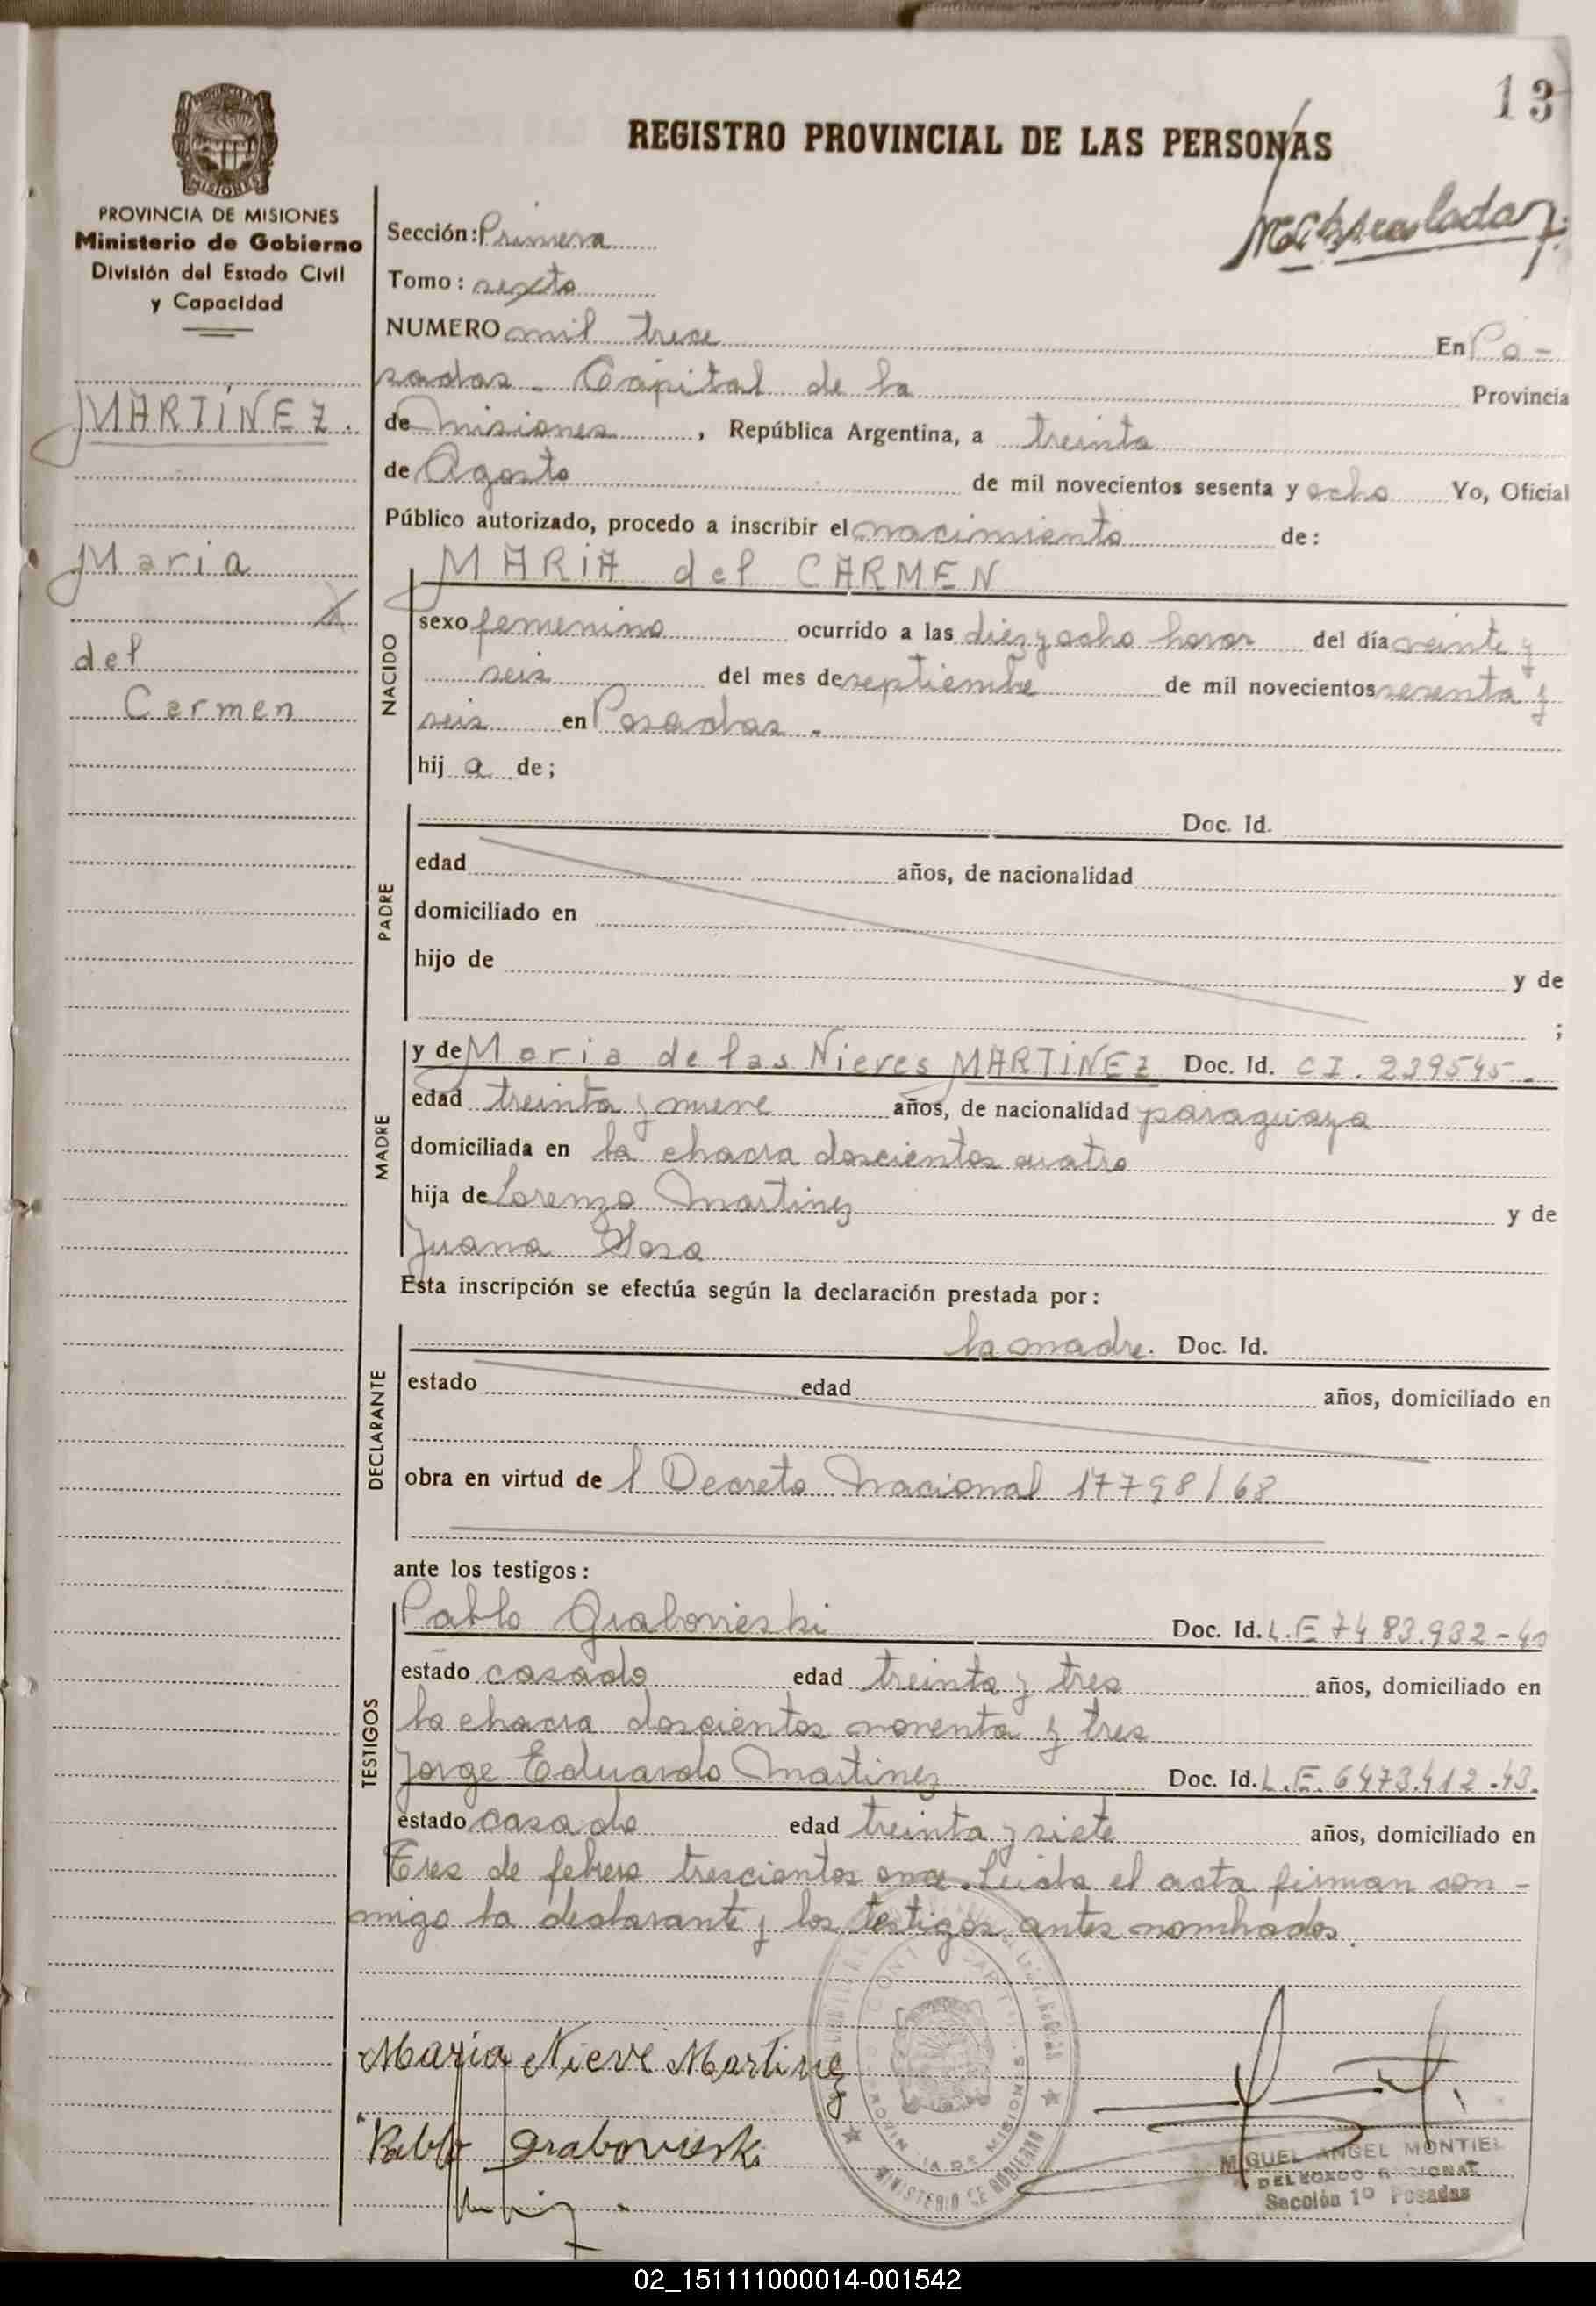 13
REGISTRO PROVINCIAL DE LAS PERSONAS
PROVINCIA DE MISIONES
Ministerio de Gobierno
División del Estado Civil
y Capacidad
MARTÍNEZ.
Maria
del
Carmen
Sección: Primera
Tomo: sexto
NUMERO mil trece En Po-
sadas. Capital de la Provincia
de Misiones, República Argentina, a treinta
de Agosto de mil novecientos sesenta y ocho Yo, Oficial
Público autorizado, procedo a inscribir el nacimiento de:
MARIA del CARMEN
NACIDO
sexo femenino ocurrido a las diez y ocho horas del día veinte y
seis del mes de septiembre de mil novecientos sesenta y
seis en Posadas.
hij a de;
PADRE
Doc. Id.
edad años, de nacionalidad
domiciliado en
hijo de y de
;
MADRE
y de Maria de las Nieves MARTINEZ Doc. Id. C I. 239545.
edad treinta y nueve años, de nacionalidad paraguaya
domiciliada en la chacra doscientos cuatro
hija de Lorenzo Martinez y de
Juana Sosa
Esta inscripción se efectúa según la declaración prestada por:
DECLARANTE
la madre. Doc. Id.
estado edad años, domiciliado en
obra en virtud de l Decreto Nacional 17798/68
ante los testigos:
TESTIGOS
Pablo Grabovieski Doc. Id. L.E 7483.932-40
estado casado edad treinta y tres años, domiciliado en
la chacra doscientos noventa y tres
Jorge Eduardo Martinez Doc. Id. L.E. 6473.412.43.
estado casado edad treinta y siete años, domiciliado en
Tres de febrero trescientos once. Leida el acta firman con-
migo la declarante y los testigos antes nombrados.
Maria Nieve Martinez
Pablo Grabovieski
MINISTERIO DE GOBIERNO
MIGUEL ANGEL MONTIEL
Sección 1º Posadas
02_151111000014-001542